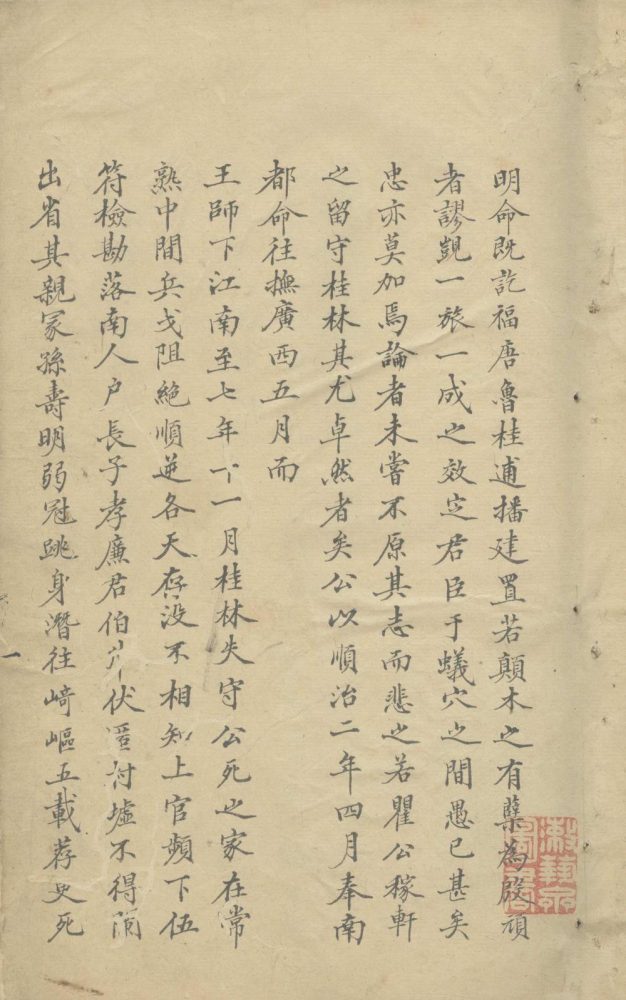 明命既訖福唐魯桂逋播建置若顛木之有蘖為殷頑
者謬覬一旅一成之效定君臣于蟻穴之間愚已甚矣
忠亦莫加焉論者未嘗不原其志而悲之若瞿公稼軒
之留守桂林其尤卓然者矣公以順治二年四月奉南
都命往撫廣西五月而
王師下江南至七年十一月桂林失守公死之家在常
熟中間兵戈阻絕順逆各天存沒不相知上官頻下伍
符檢勘落南人戶長子孝廉君伯升伏匿村墟不得閒
出省其親冢孫壽明弱冠跳身潛往崎嶇五載荐更死
一